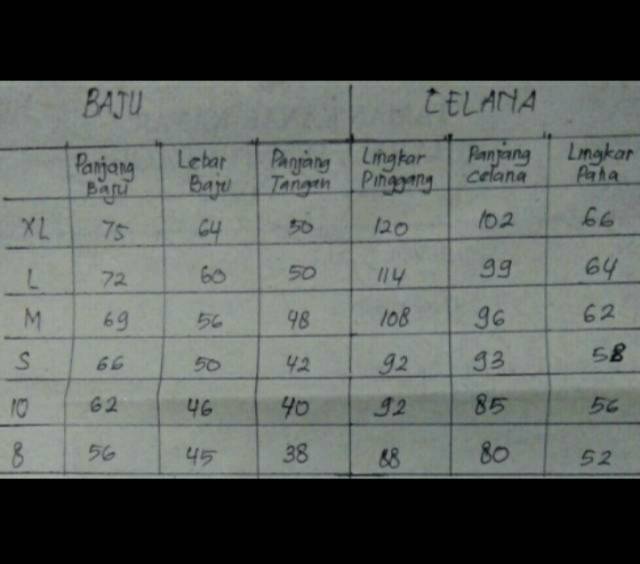 BAJU CELANA
Panjang Baju Lebar Baju Panjang Tangan Lingkar Pinggang Panjang celana Lingkar Paha
XL 75 64 50 120 102 66
L 72 60 50 114 99 64
M 69 56 48 108 96 62
S 66 50 42 92 93 58
10 62 46 40 92 85 56
8 56 45 38 88 80 52